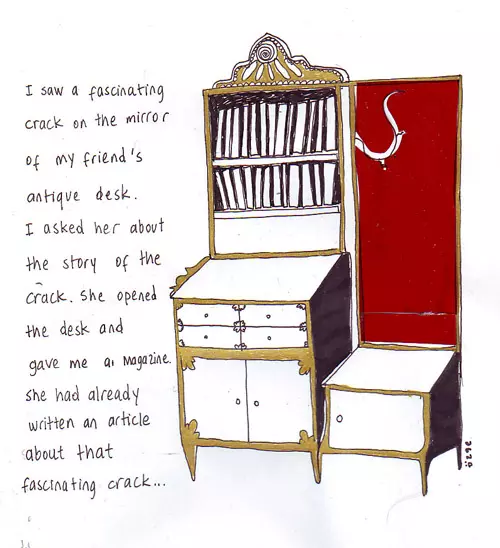 I saw a fascinating
crack on the mirror
of my friend's
antique desk.
I asked her about
the story of the
crack. She opened
the desk and
gave me a magazine.
She had already
written an article
about that
fascinating crack...
özge